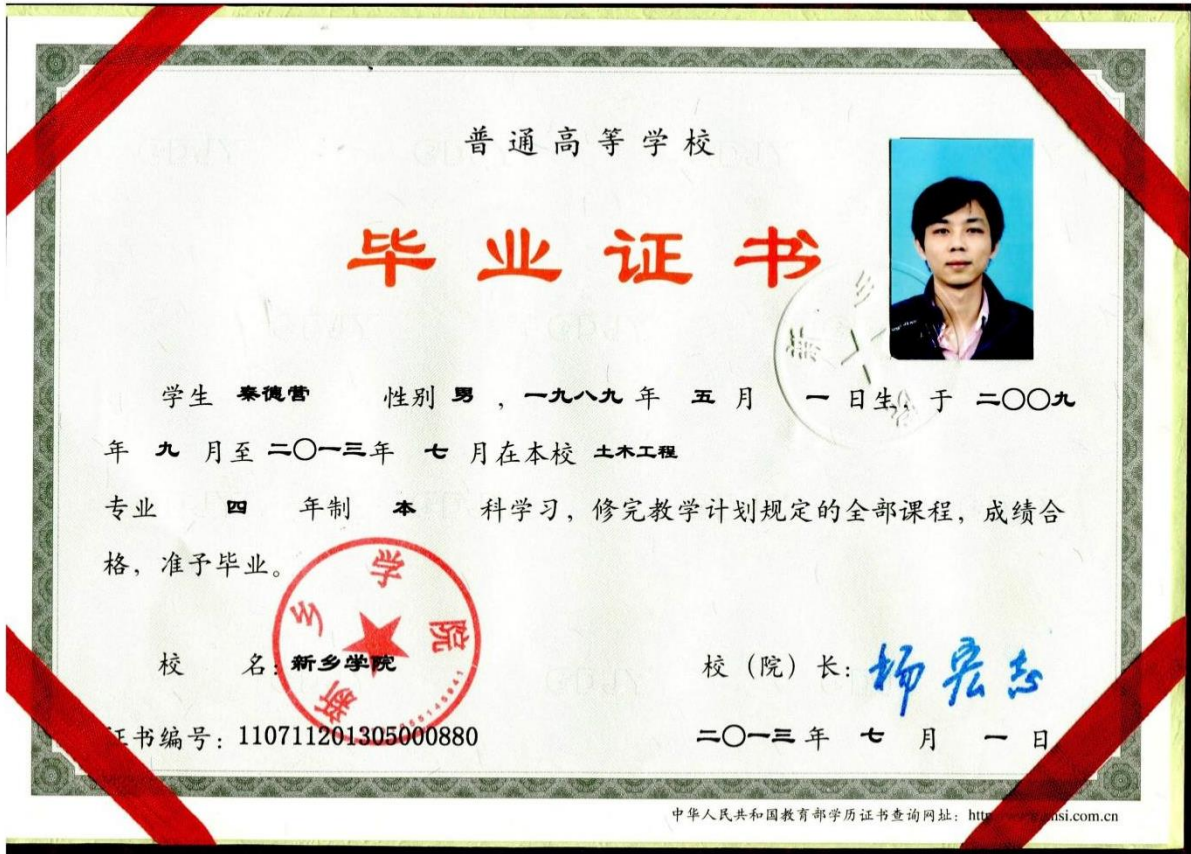 普通高等学校
毕业证书
学生 秦德营 性别 男 ,一九八九 年 五 月 一 日生,于 二〇〇九
年 九 月至 二〇一三年 七 月在本校 土木工程
专业 四 年制 本 科学习,修完教学计划规定的全部课程,成绩合
格,准予毕业。
新乡学院
校 名:新乡学院
校(院)长:杨宏志
证书编号:110711201305000880
二〇一三 年 七 月 一 日
中华人民共和国教育部学历证书查询网址:http
si.com.cn